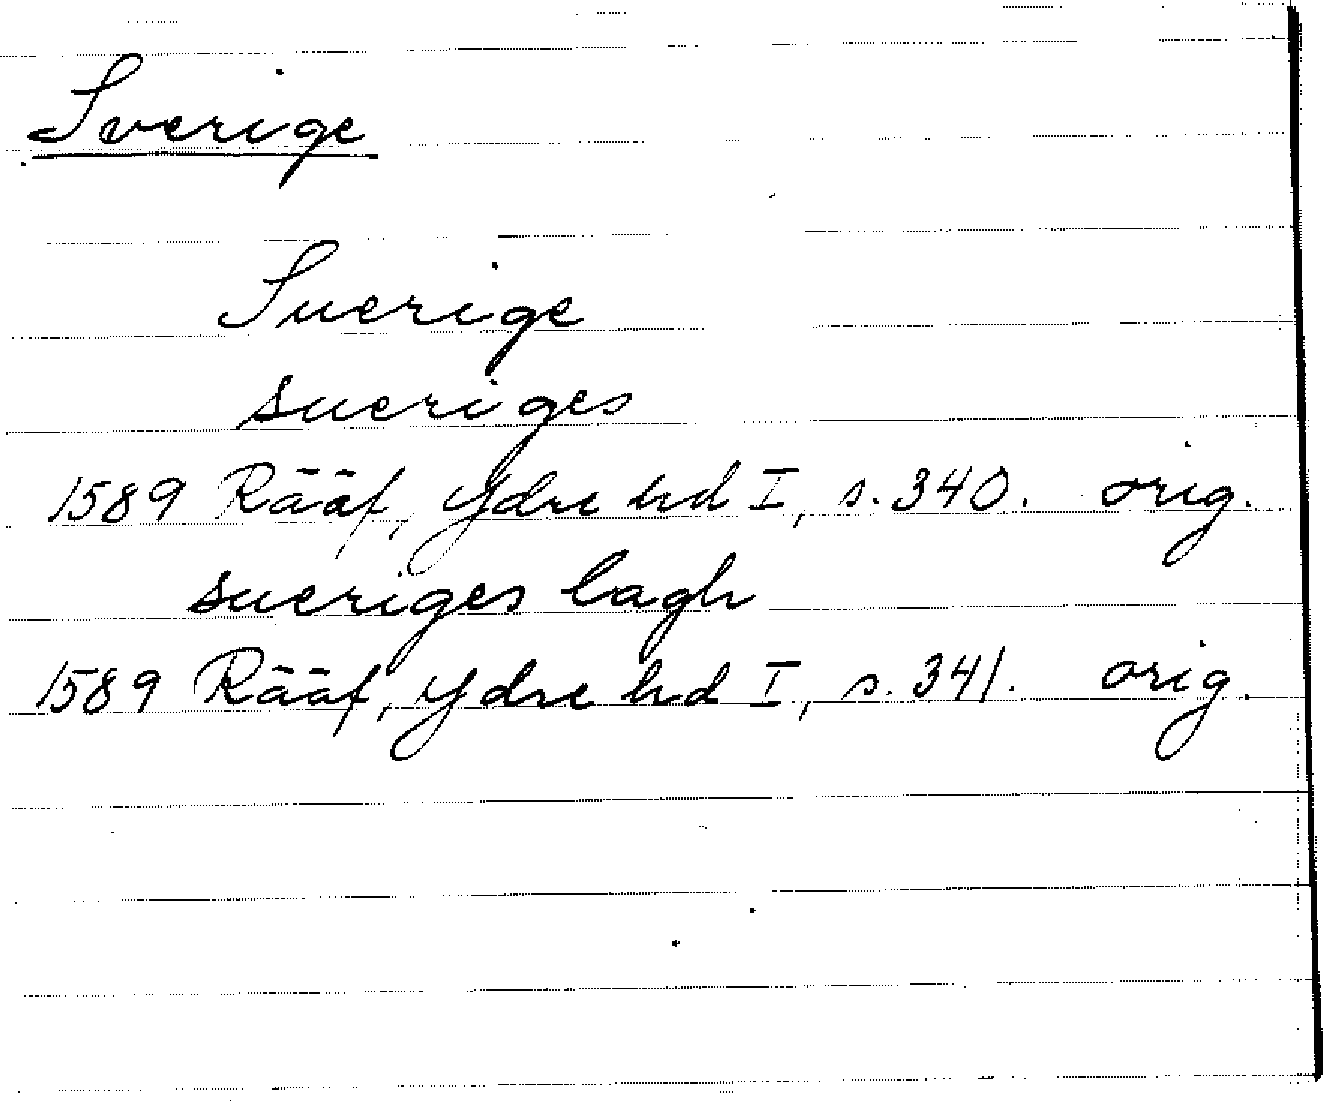 Sverige
Suerige
sueriges
1589 Rääf, Ydre hd I, s. 340. orig.
sueriges lagh
1589 Rääf, Ydre hd I, s. 341. orig.